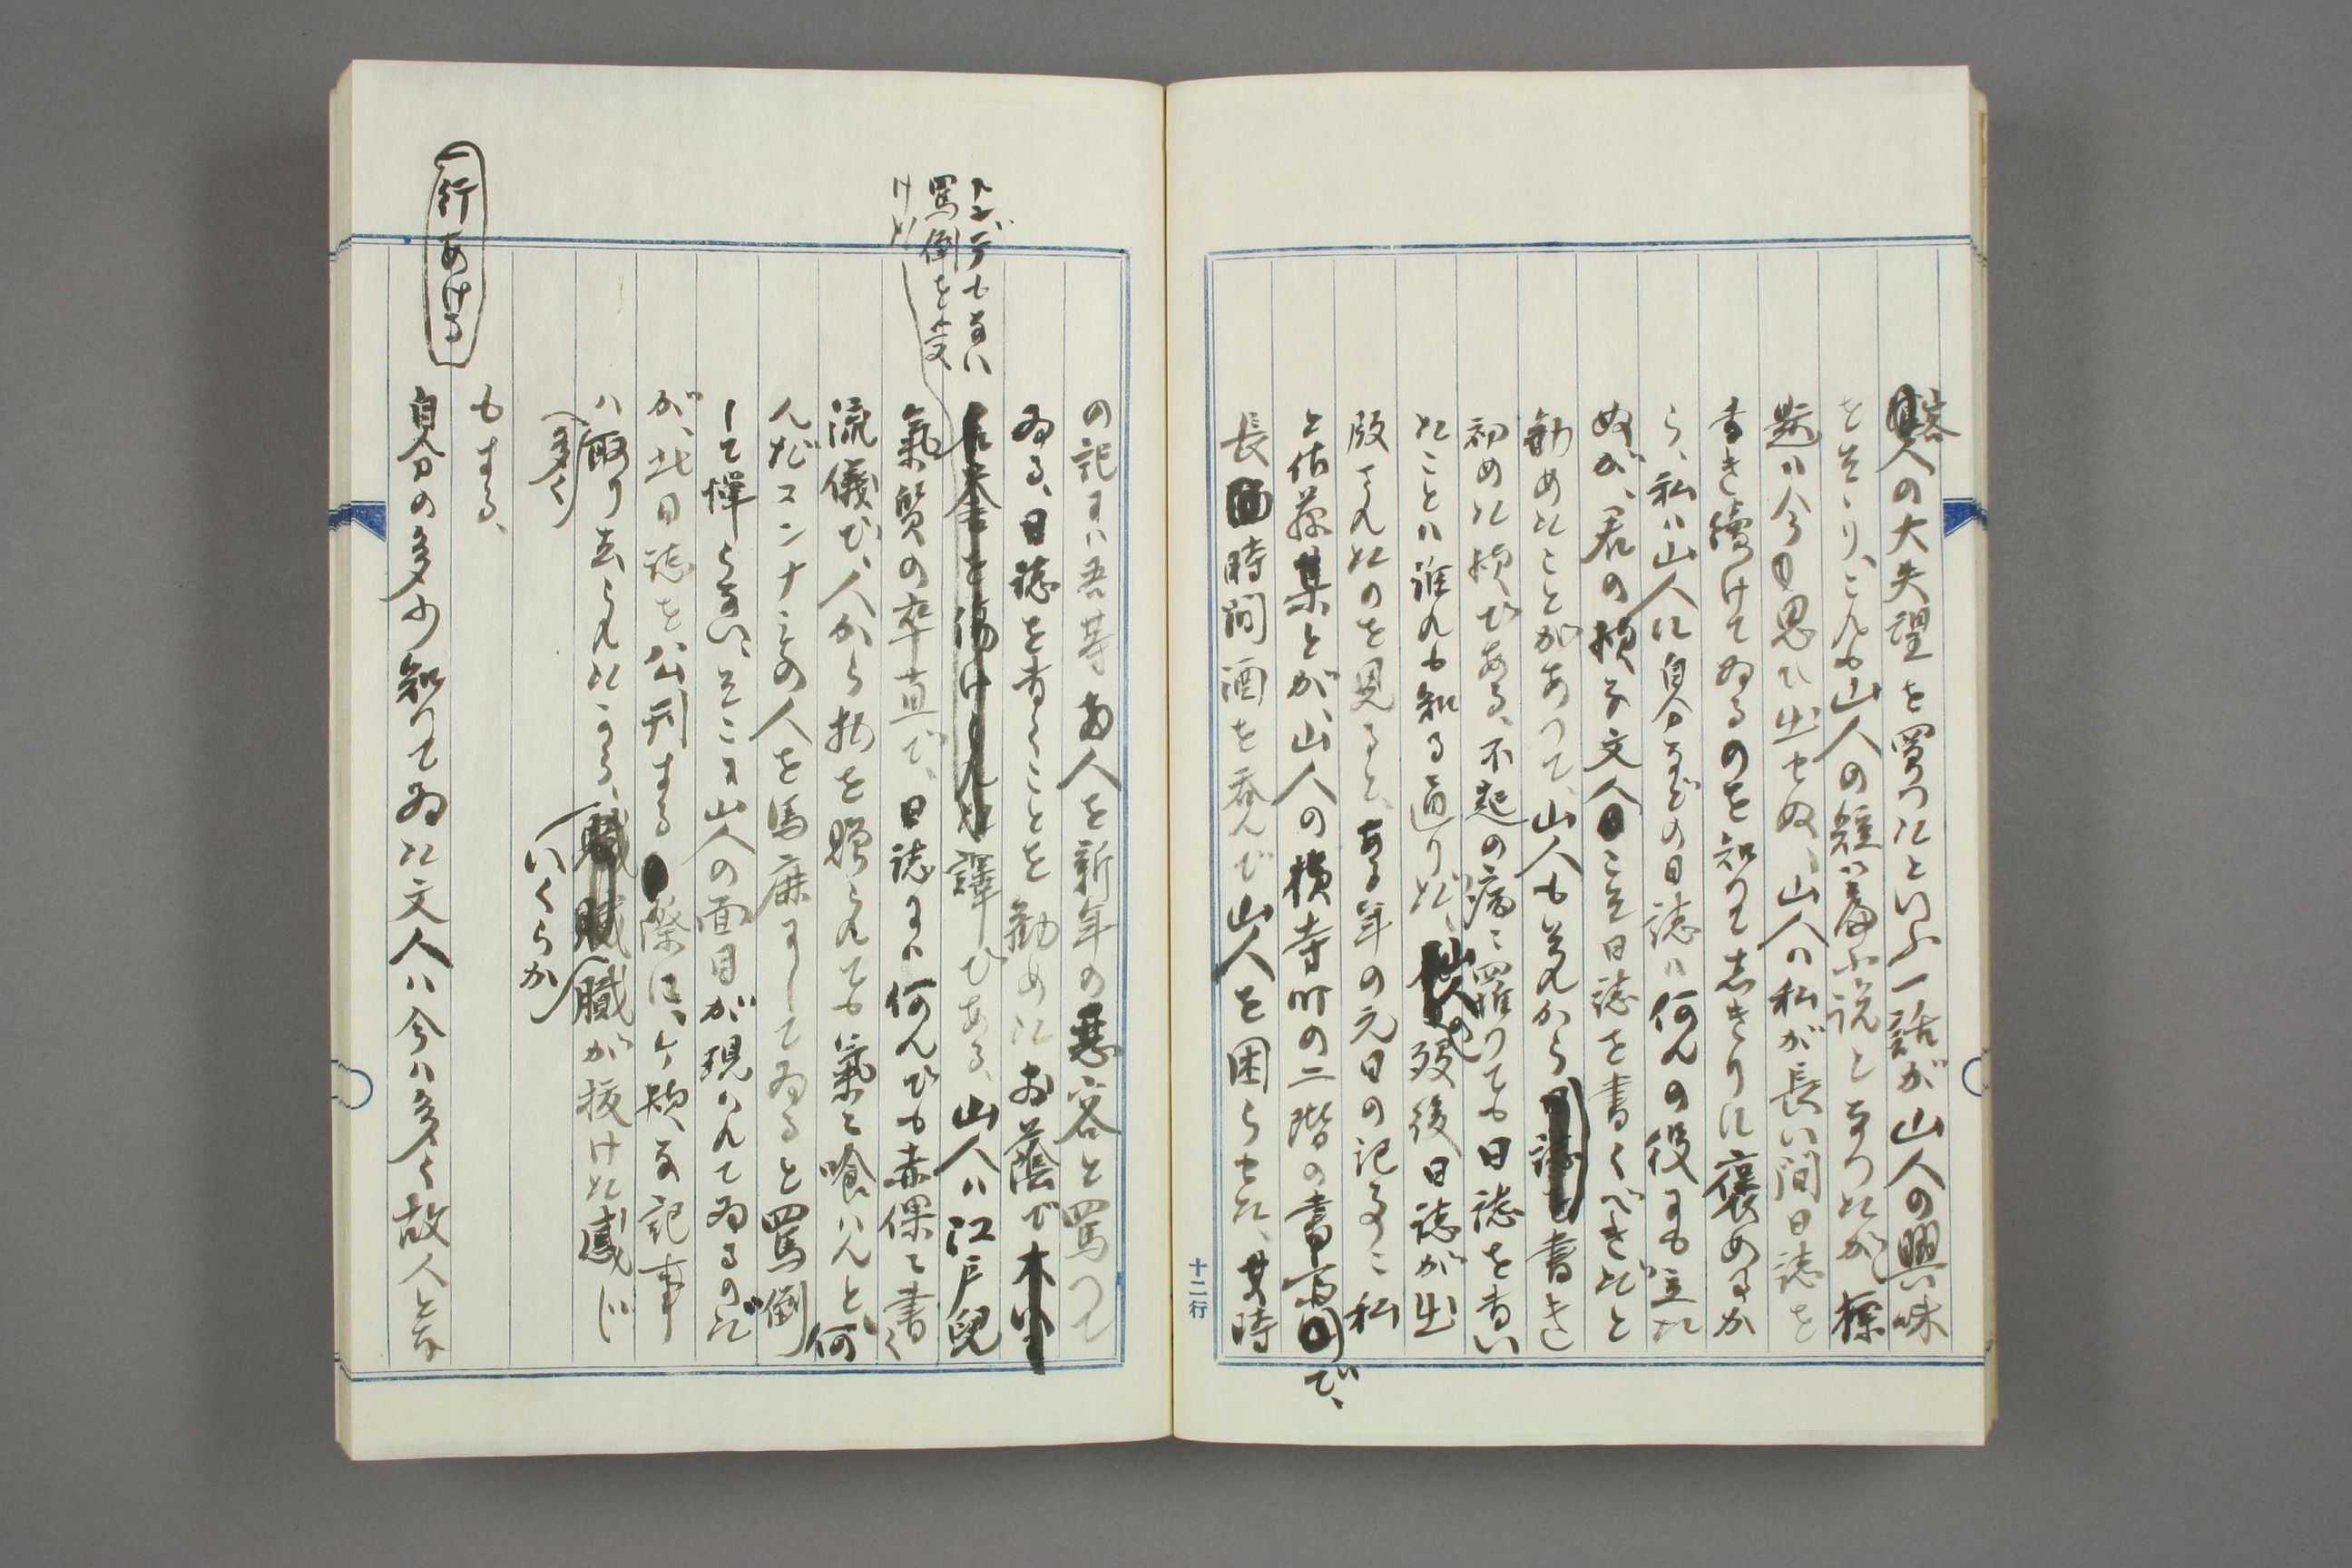 客人の大失望を買つたといふ一話が山人の興味
をそゝり、これも山人の短い篇小説となつたが、標
題ハ今思ひ出せぬ、山人ハ私が長い間日誌を
書き續けてゐるのを知りて志きりに褒めるか
ら、私ハ山人に自分などの日誌ハ何んの役にも立た
ぬが、君の様な文人こそ日誌を書くべきだと
勧めたことがあつて、山人もそれから書き
初めた様である、不起の病に罹りても日誌を書い
たことハ誰れも知る通りだ、歿後日誌が出
版されたのを見ると、ある年の元日の記事に私
と佐藤某とが、山人の横寺町の二階の書斎で、
長時間酒を呑んで山人を困らせた、其時
の記にハ吾等両人を新年の悪客と罵つて
ゐる、日誌を書くことを勧めたお蔭で
トンデもない
罵倒を受
けた
譯である、山人ハ江戸兒
氣質の卒直で、日誌にハ何んでも赤裸に書く
流儀で、人から物を贈られても氣に喰ハんと、何
んだコンナもの人を馬鹿にしてゐると罵倒
して憚らない、そこに山人の面目が現ハれてゐるのだ
が、此日誌を公刊する際に、ケ様な記事
ハ多く
削り去られたから、臓が抜けた感じ
いくらか
もする、
一行あける
自分の多少知りてゐた文人ハ今ハ多く故人とな
十二行